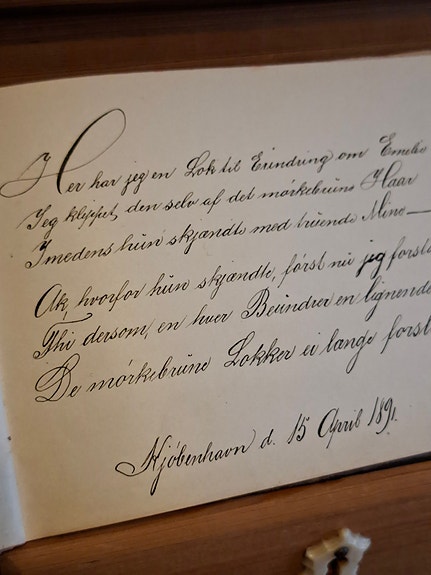 Her har jeg en Lok til Erindring om Emilie
Jeg klippet den selv af det mørkebrune Haar
Imedens hun skjændte med truende Mine —
Ak, hvorfor hun skjændte, først nu jeg forsta
Thi dersom en hver Beundrer en lignende
De mørkebrune Lokker ei længe forsl
Kjøbenhavn d. 15 April 1891.